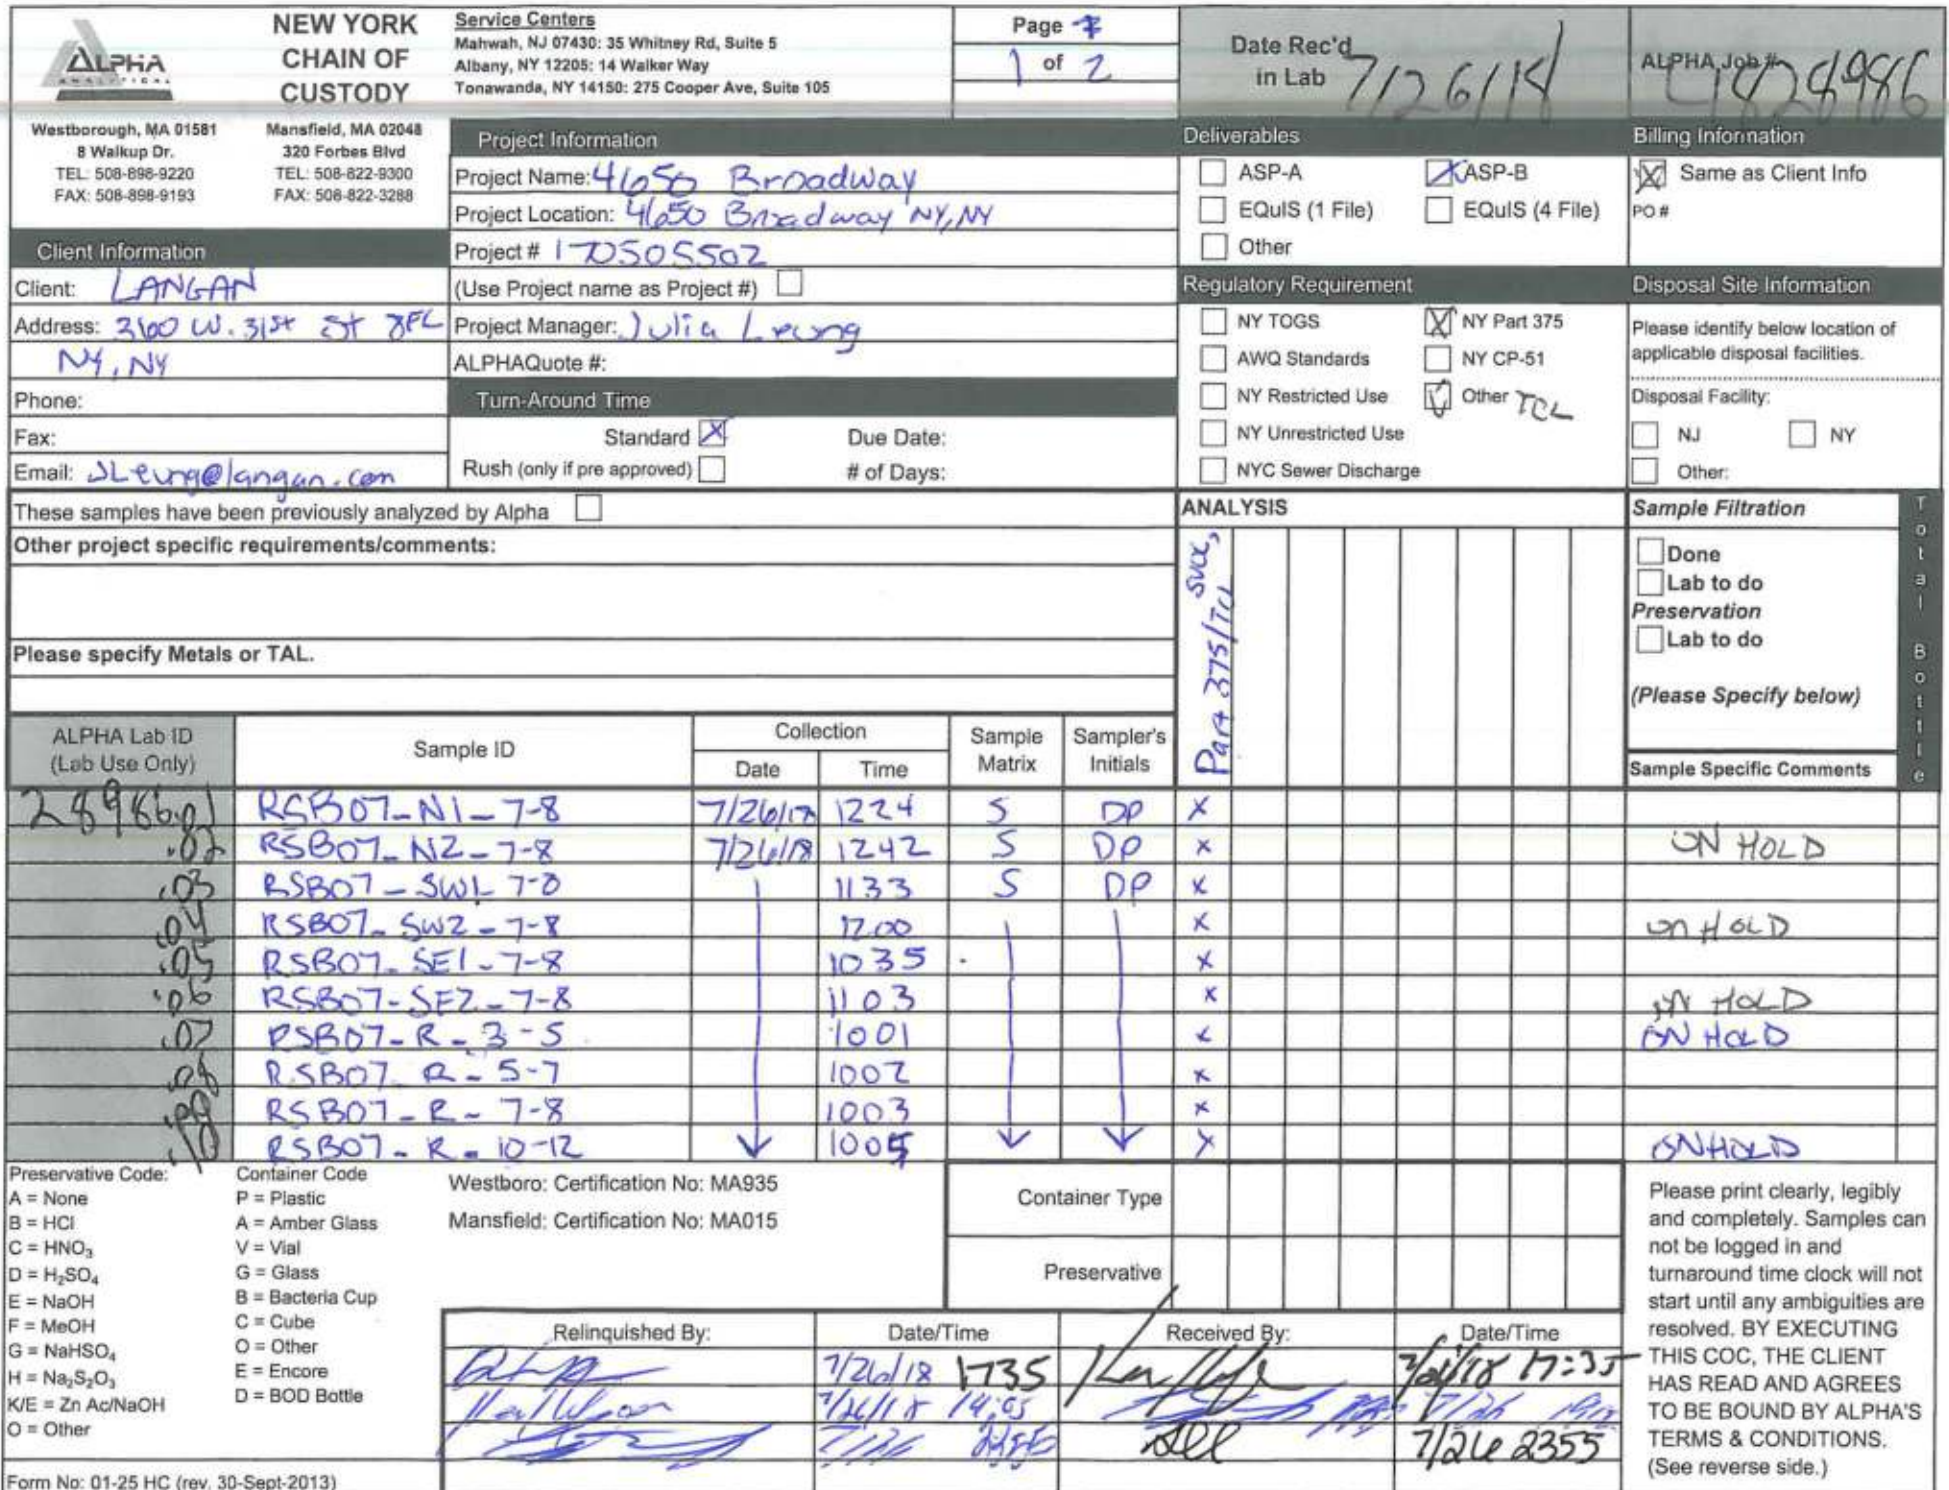 ALPHA
ANALYTICAL
NEW YORK
CHAIN OF
CUSTODY
Westborough, MA 01581
8 Walkup Dr.
TEL: 508-898-9220
FAX: 508-898-9193
Mansfield, MA 02048
320 Forbes Blvd
TEL: 508-822-9300
FAX: 508-822-3288
Service Centers
Mahwah, NJ 07430: 35 Whitney Rd, Suite 5
Albany, NY 12205: 14 Walker Way
Tonawanda, NY 14150: 275 Cooper Ave, Suite 105
Page
1 of 2
Date Rec'd
in Lab 7/26/18
ALPHA Job #
L1828986
Client Information
Client: LANGAN
Address: 360 W. 31st St 8FL
NY, NY
Phone:
Fax:
Email: JLeung@langan.com
Project Information
Project Name: 4650 Broadway
Project Location: 4650 Broadway NY, NY
Project # 170505502
(Use Project name as Project #)
Project Manager: Julia Leung
ALPHAQuote #:
Turn-Around Time
Standard X Due Date:
Rush (only if pre approved) # of Days:
Deliverables
ASP-A X ASP-B
EQuIS (1 File) EQuIS (4 File)
Other
Regulatory Requirement
NY TOGS X NY Part 375
AWQ Standards NY CP-51
NY Restricted Use Other TCL
NY Unrestricted Use
NYC Sewer Discharge
Billing Information
X Same as Client Info
PO #
Disposal Site Information
Please identify below location of
applicable disposal facilities.
Disposal Facility:
NJ NY
Other:
These samples have been previously analyzed by Alpha
Other project specific requirements/comments:
Please specify Metals or TAL.
ANALYSIS
Part 375/TCL
Sample Filtration
Done
Lab to do
Preservation
Lab to do
(Please Specify below)
Total Bottle
ALPHA Lab ID
(Lab Use Only)
Sample ID
Collection
Date Time
Sample
Matrix
Sampler's
Initials
Sample Specific Comments
28986.01 RSB07_N1_7-8 7/26/18 1224 S DP X
.02 RSB07_N2_7-8 7/26/18 1242 S DP X ON HOLD
.03 RSB07_SW1_7-8 1133 S DP X
.04 RSB07_SW2_7-8 1200 X ON HOLD
.05 RSB07_SE1_7-8 1035 X
.06 RSB07-SE2_7-8 1103 X ON HOLD
.07 RSB07-R_3-5 1001 X ON HOLD
.08 RSB07_R_5-7 1002 X
.09 RSB07_R_7-8 1003 X
.10 RSB07_R_10-12 1005 X ON HOLD
Preservative Code:
A = None
B = HCl
C = HNO₃
D = H₂SO₄
E = NaOH
F = MeOH
G = NaHSO₄
H = Na₂S₂O₃
K/E = Zn Ac/NaOH
O = Other
Container Code
P = Plastic
A = Amber Glass
V = Vial
G = Glass
B = Bacteria Cup
C = Cube
O = Other
E = Encore
D = BOD Bottle
Westboro: Certification No: MA935
Mansfield: Certification No: MA015
Container Type
Preservative
Relinquished By: Date/Time Received By: Date/Time
7/26/18 1735 7/26/18 17:35
7/26/18 7/26
7/26 7/26 2355
Please print clearly, legibly
and completely. Samples can
not be logged in and
turnaround time clock will not
start until any ambiguities are
resolved. BY EXECUTING
THIS COC, THE CLIENT
HAS READ AND AGREES
TO BE BOUND BY ALPHA'S
TERMS & CONDITIONS.
(See reverse side.)
Form No: 01-25 HC (rev. 30-Sept-2013)